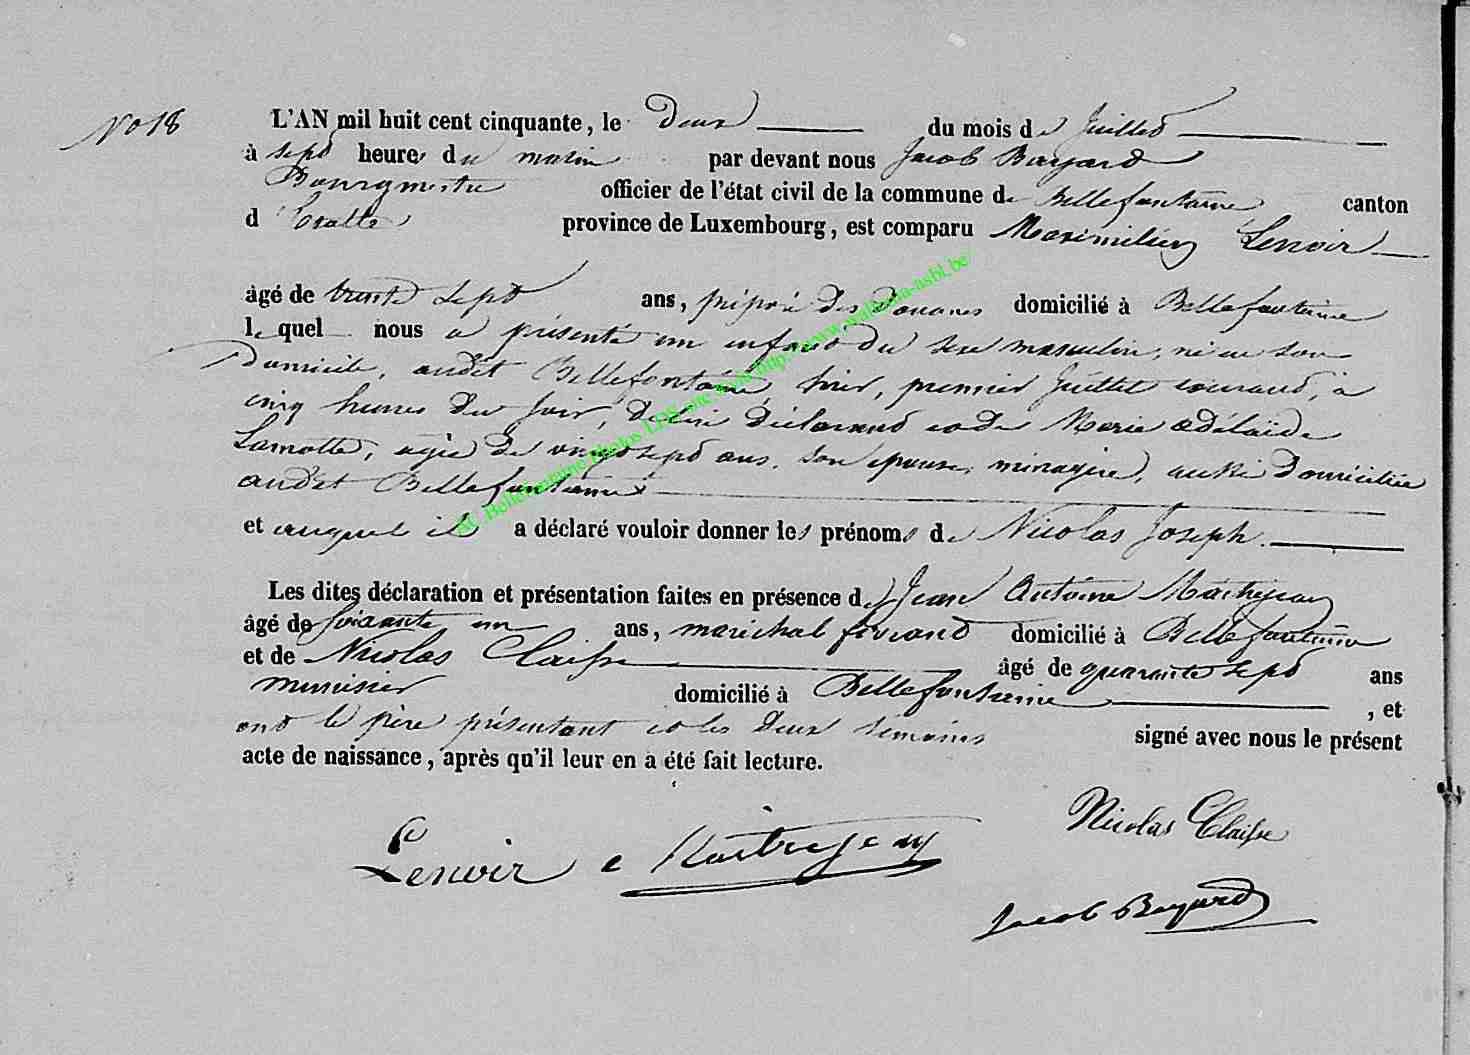 No 18
L'AN mil huit cent cinquante, le Deux du mois de Juillet
à sept heures du matin par devant nous Jacob Bayard
Bourgmestre officier de l'état civil de la commune de Bellefontaine canton
d'Etalle province de Luxembourg, est comparu Maximilien Lenoir
âgé de trente sept ans, préposé des Douanes domicilié à Bellefontaine
lequel nous a présenté un enfant du sexe masculin, né en son
Domicile, audit Bellefontaine, hier, premier Juillet courant, à
cinq heures du soir, De lui Déclarant et de Marie Adélaïde
Lamotte, agée de vingt sept ans, son épouse, ménagère, aussi Domiciliée
audit Bellefontaine
et auquel il a déclaré vouloir donner les prénoms de Nicolas Joseph.
Les dites déclaration et présentation faites en présence de Jean Antoine Maitrejean
âgé de soixante un ans, maréchal ferrant domicilié à Bellefontaine
et de Nicolas Claisse âgé de quarante sept ans
menuisier domicilié à Bellefontaine, et
ont le père présentant et les Deux témoins signé avec nous le présent
acte de naissance, après qu'il leur en a été fait lecture.
Nicolas Claisse
Lenoir Maitrejean
Jacob Bayard
AC Bellefontaine Photos LDS site web http://www.wallonia-asbl.be/